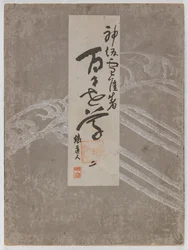 神坂雪佳著
百々世草 二